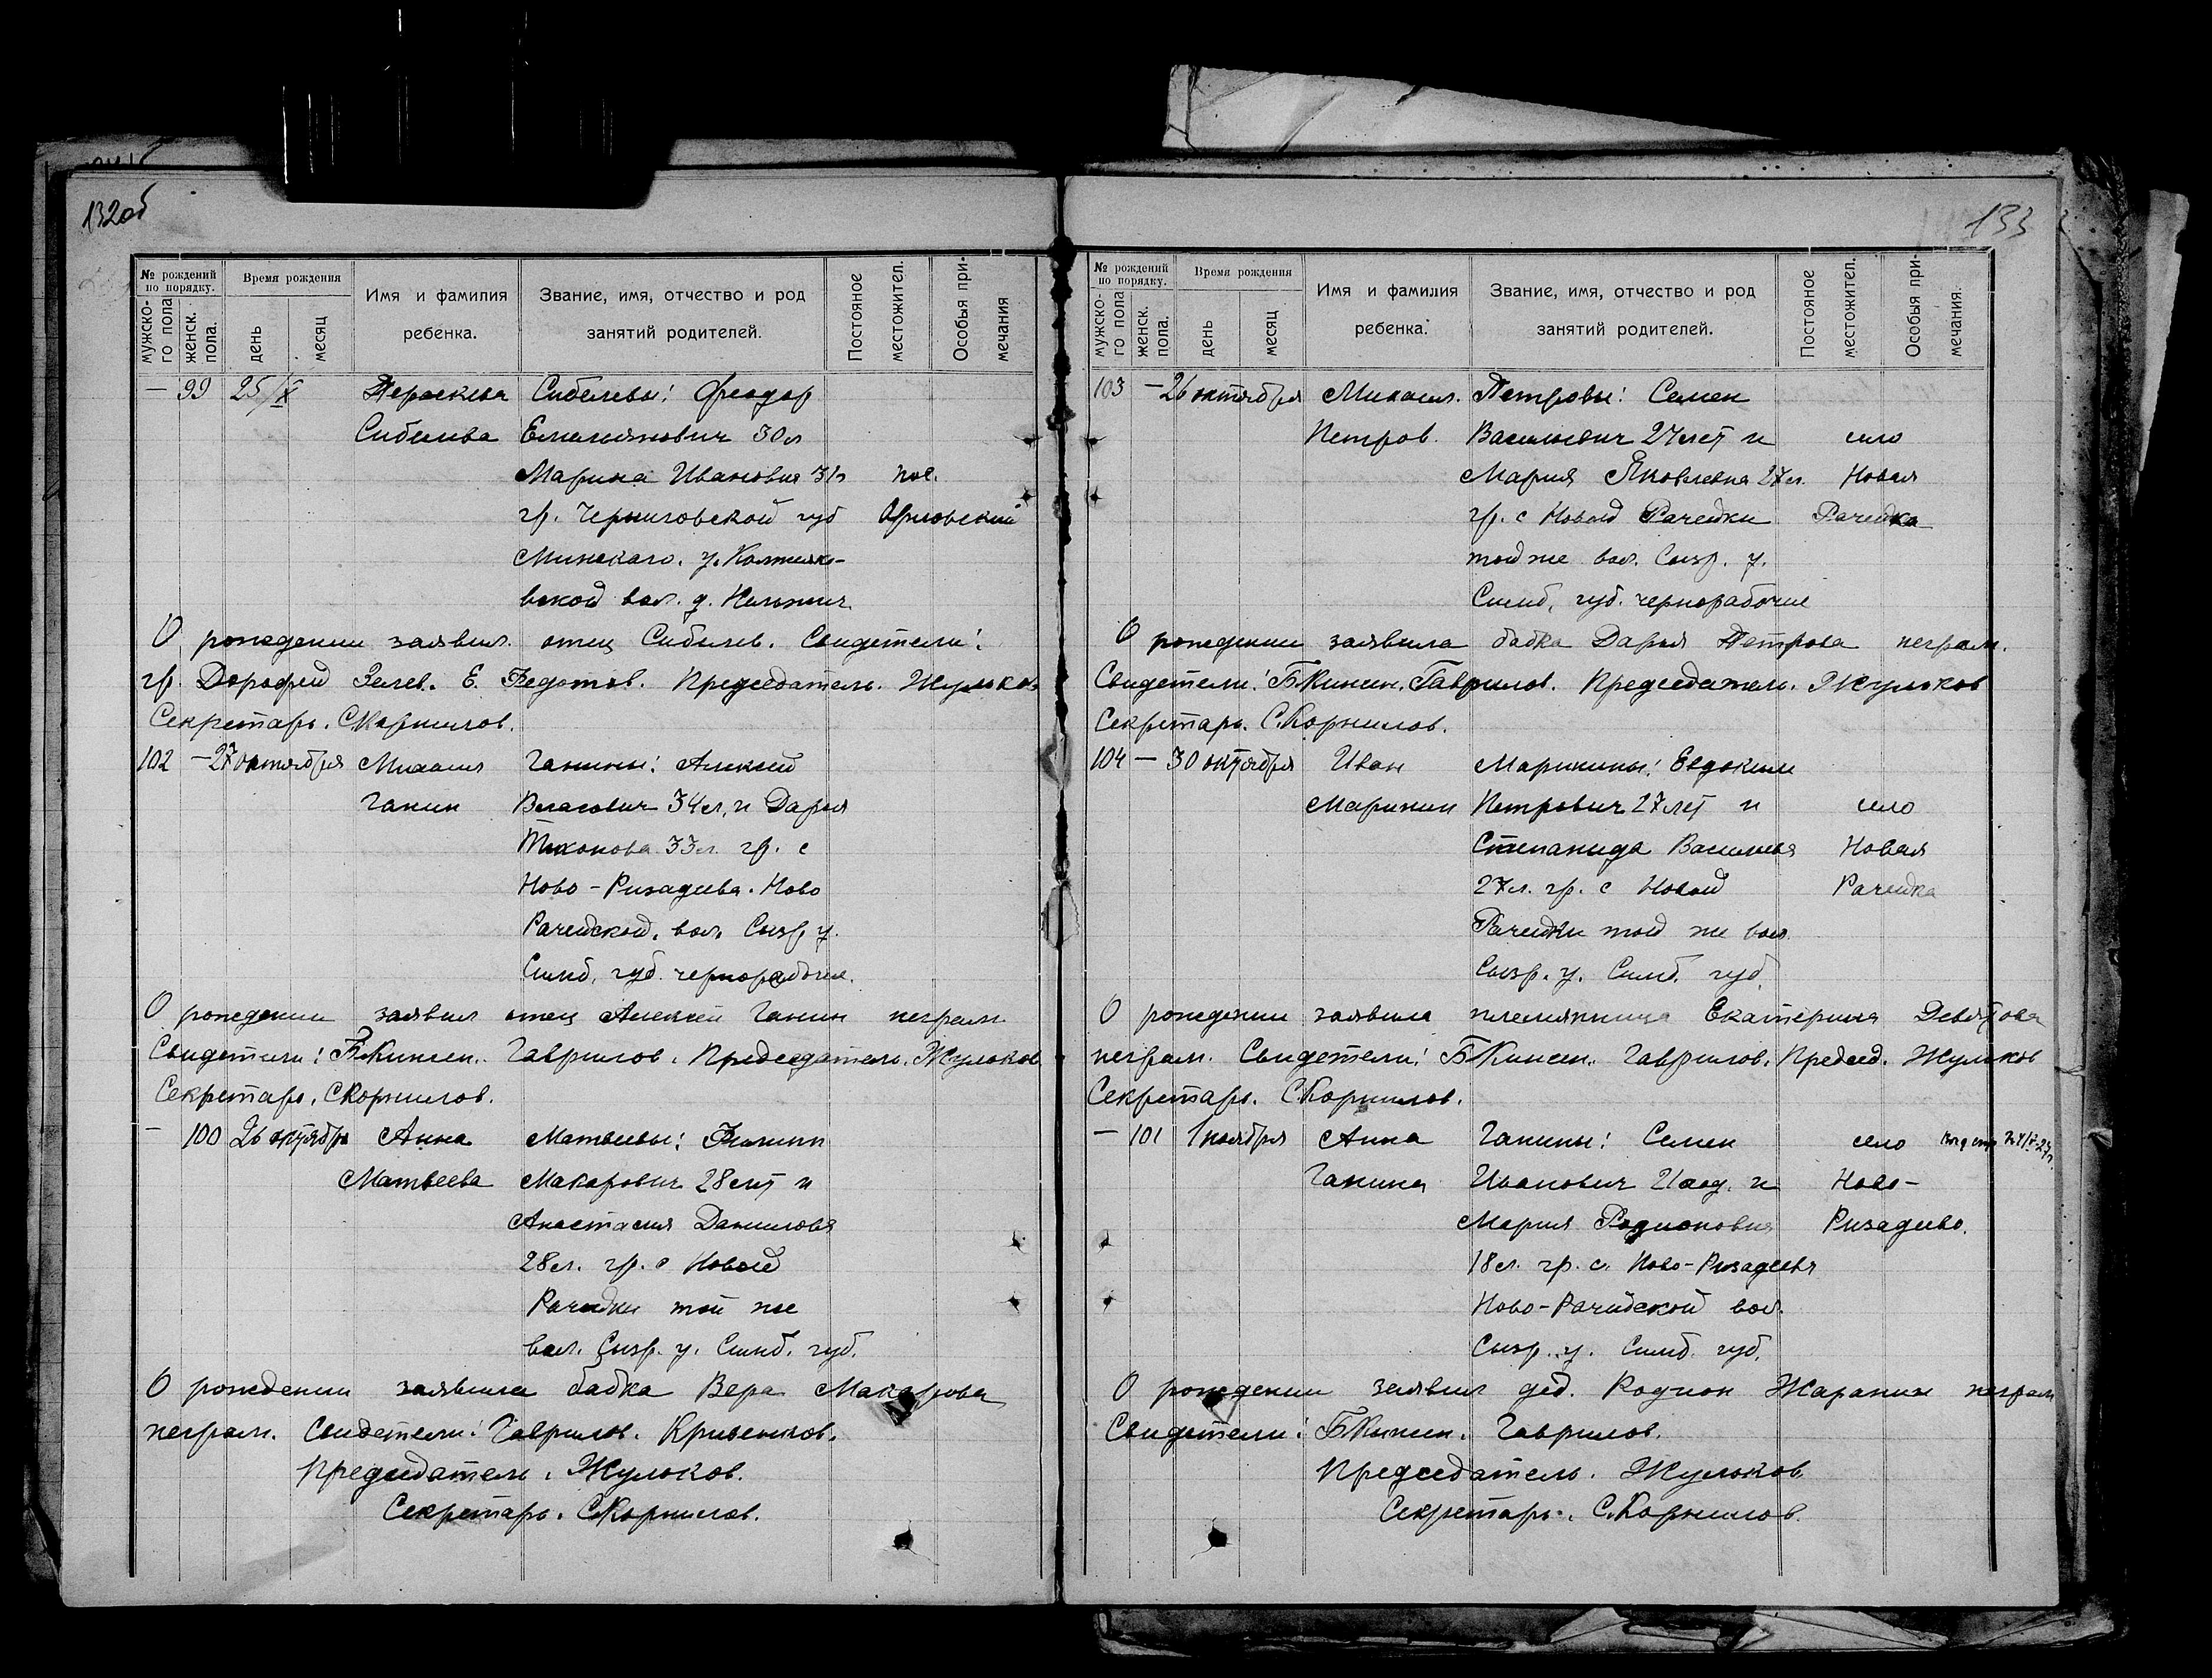 132об
№ рождений по порядку.
мужского пола
женск. пола.
Время рождения
день
месяц
Имя и фамилия ребенка.
Звание, имя, отчество и род занятий родителей.
Постояное местожител.
Особыя примечания
— 99 25/X Параскева Сибилева
Сибилевы: Феодор
Емелиянович 30 л
Марина Ивановна 31 л пос.
гр. Черниговской губ Орловский
вской вол. д.
О рождении заявил отец Сибилев. Свидетели:
гр. Дорофей Зелев. Е. Федотов. Председатель. Жульков
Секретарь. С Корнилов.
102 — 27 октября Михаил Ганины: Алексей
Ганин Власович 34 л, и Дарья
Тихонова 33 л. гр. с
Ново-Ризадеева. Ново
Рачейской, вол. Сызр у.
Симб. губ. чернорабочие.
О рождении заявил отец Алексей Ганин неграм.
Свидетели: Б Кинсин. Гаврилов. Председатель. Жульков
Секретарь. С Корнилов.
— 100 26 октября Анна Матвеевы: Филипп
Матвеева Макарович 28 лет и
Анастасия Данилова
28 л. гр. с Новой
Рачейки той же
вол. Сызр. у. Симб. губ.
О рождении заявила бабка Вера Макарова
неграм. Свидетели: Гаврилов. Кривенков.
Председатель. Жульков.
Секретарь. С Корнилов.
133
№ рождений по порядку.
мужского пола
женск. пола.
Время рождения
день
месяц
Имя и фамилия ребенка.
Звание, имя, отчество и род занятий родителей.
Постояное местожител.
Особыя примечания.
103 — 26 октября Михаил. Петровы: Семен
Петров. Васильевич 27 лет и село
Мария Яковлевна 27 л. Новая
гр. с Новой Рачейки Рачейка
той же вол. Сызр. у.
Симб. губ. чернорабочие
О рождении заявила бабка Дарья Петрова неграм.
Свидетели: Б Кинсин. Гаврилов. Председатель. Жульков
Секретарь. С. Корнилов.
104 — 30 октября Иван Маринины: Евдоким
Маринин Петрович 27 лет и село
Степанида Василивна Новая
27 л. гр. с Новой Рачейка
Рачейки той же вол
Сызр. у. Симб. губ.
О рождении заявила племянница Екатерина Девятова
неграм. Свидетели: Б Кинсин. Гаврилов. Председ. Жульков
Секретарь. С. Корнилов.
— 101 1 ноября Анна Ганины: Семен село
Ганина Иванович 21 год. и Ново-
Мария Родионовна Ризадеево.
18 л. гр. с. Ново-Ризадеева
Ново-Рачейской вол.
Сызр. у. Симб. губ.
О рождении заявил дед. Родион Жаранин неграм
Свидетели: Б Кинсин. Гаврилов.
Председатель. Жульков.
Секретарь. С. Корнилов.